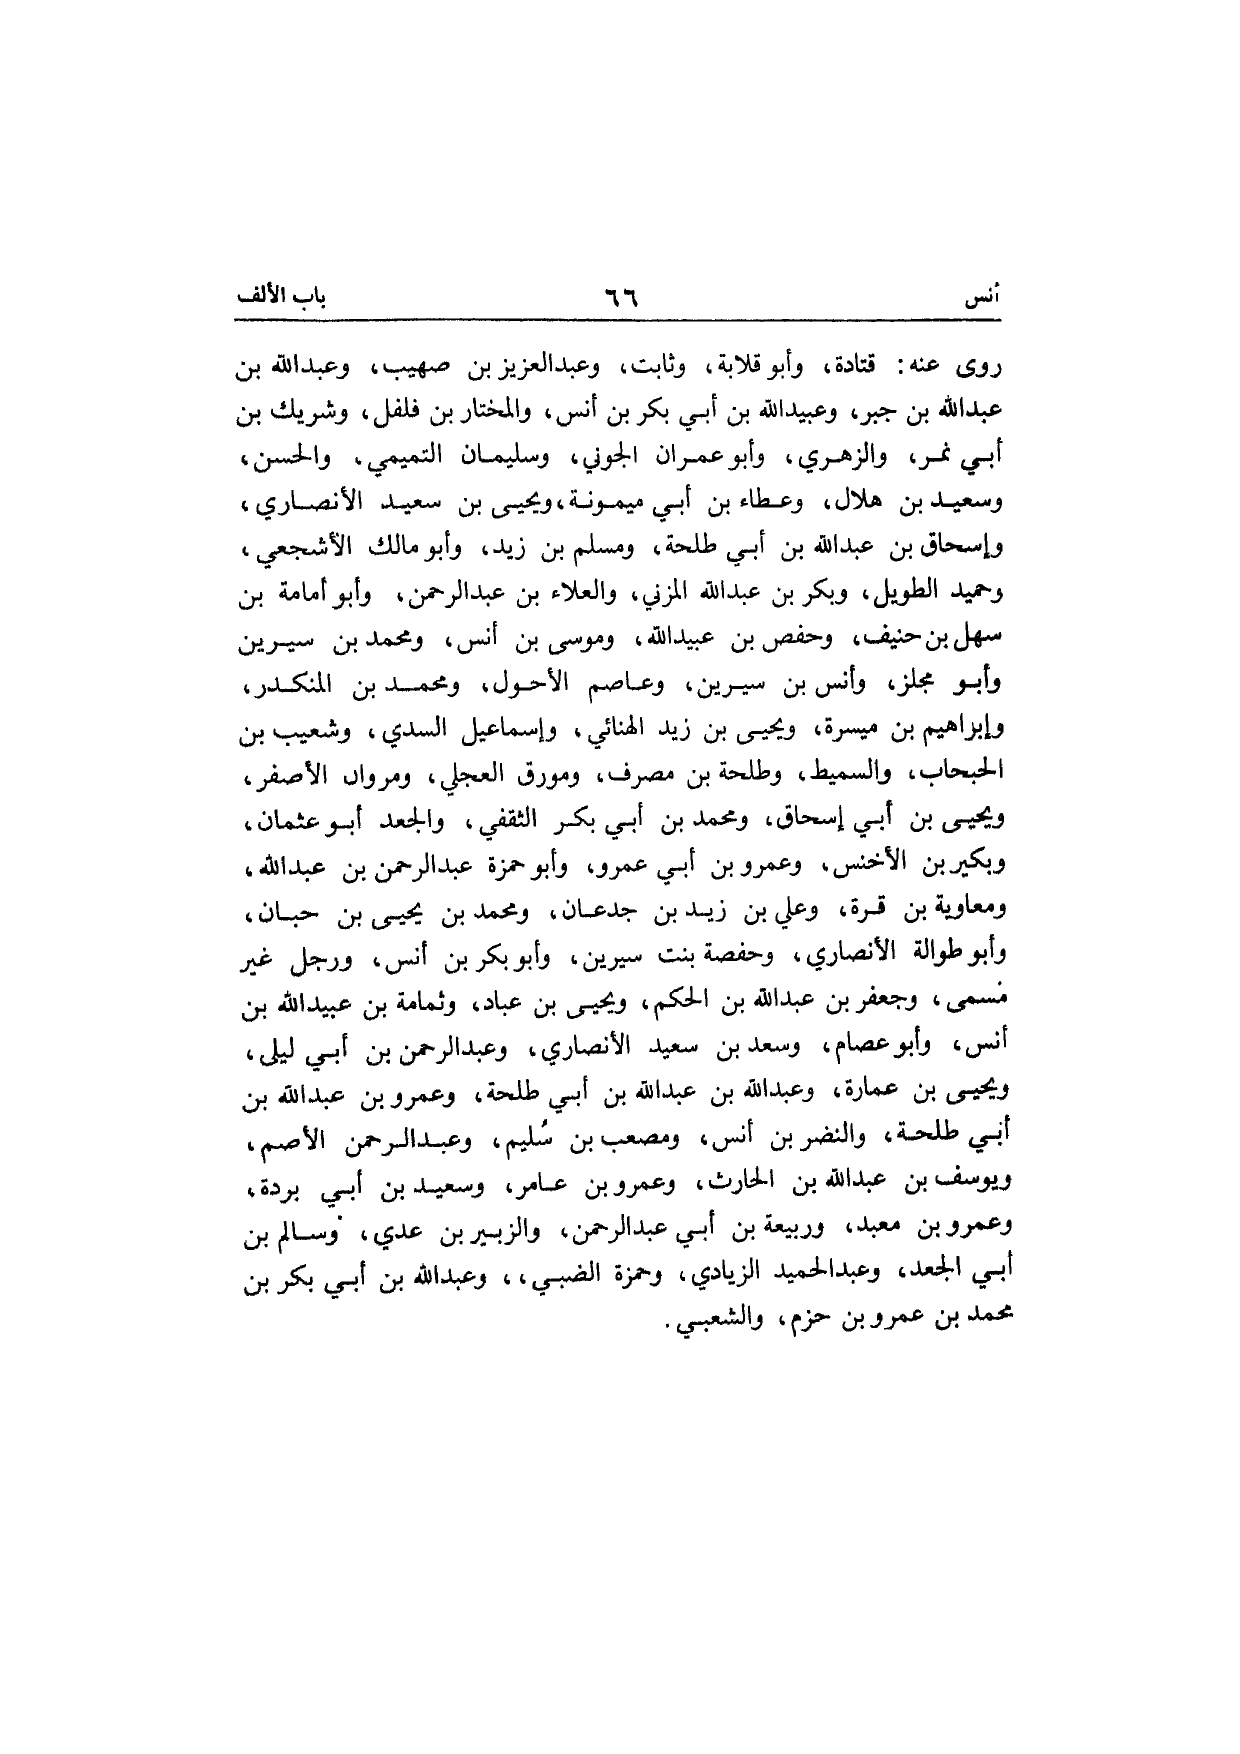 أنس ٦٦ باب الألف
روى عنه: قتادة، وأبو قلابة، وثابت، وعبدالعزيز بن صهيب، وعبدالله بن
عبدالله بن جبر، وعبيدالله بن أبي بكر بن أنس، والمختار بن فلفل، وشريك بن
أبي نمر، والزهري، وأبو عمران الجوني، وسليمان التميمي، والحسن،
وسعيد بن هلال، وعطاء بن أبي ميمونة، ويحيى بن سعيد الأنصاري،
وإسحاق بن عبدالله بن أبي طلحة، ومسلم بن زيد، وأبو مالك الأشجعي،
وحميد الطويل، وبكر بن عبدالله المزني، والعلاء بن عبدالرحمن، وأبو أمامة بن
سهل بن حنيف، وحفص بن عبيدالله، وموسى بن أنس، ومحمد بن سيرين
وأبو مجلز، وأنس بن سيرين، وعاصم الأحول، ومحمد بن المنكدر،
وإبراهيم بن ميسرة، ويحيى بن زيد الهنائي، وإسماعيل السدي، وشعيب بن
الحبحاب، والسميط، وطلحة بن مصرف، ومورق العجلي، ومروان الأصفر،
ويحيى بن أبي إسحاق، ومحمد بن أبي بكر الثقفي، والجعد أبو عثمان،
وبكير بن الأخنس، وعمرو بن أبي عمرو، وأبو حمزة عبدالرحمن بن عبدالله،
ومعاوية بن قرة، وعلي بن زيد بن جدعان، ومحمد بن يحيى بن حبان،
وأبو طوالة الأنصاري، وحفصة بنت سيرين، وأبو بكر بن أنس، ورجل غير
مسمى، وجعفر بن عبدالله بن الحكم، ويحيى بن عباد، وثمامة بن عبيدالله بن
أنس، وأبو عصام، وسعد بن سعيد الأنصاري، وعبدالرحمن بن أبي ليلى،
ويحيى بن عمارة، وعبدالله بن عبدالله بن أبي طلحة، وعمرو بن عبدالله بن
أبي طلحة، والنضر بن أنس، ومصعب بن سُليم، وعبدالرحمن الأصم،
ويوسف بن عبدالله بن الحارث، وعمرو بن عامر، وسعيد بن أبي بردة،
وعمرو بن معبد، وربيعة بن أبي عبدالرحمن، والزبير بن عدي، وسالم بن
أبي الجعد، وعبدالحميد الزيادي، وحمزة الضبي،، وعبدالله بن أبي بكر بن
محمد بن عمرو بن حزم، والشعبي.